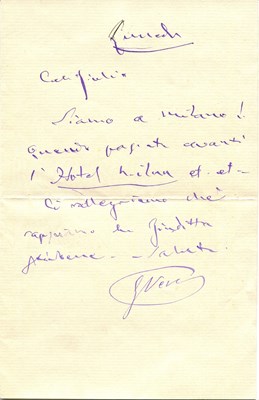 Lunedì
Car Giulio
Siamo a Milano!
Quando passate avanti
l'Hotel Milan et. et-
Ci rallegriamo che
sappiamo la Giuditta
Saluta
GVerdi